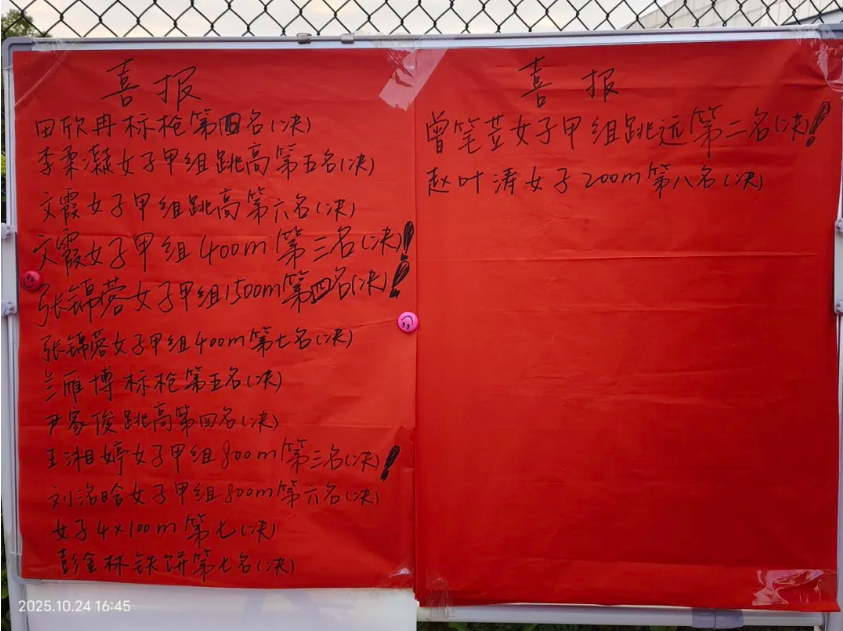 喜报
田欣冉标枪第四名(决)
李柔凝女子甲组跳高第五名(决)
文霞女子甲组跳高第六名(决)
文霞女子甲组400m第三名(决)!
张锦蓉女子甲组1500m第四名(决)!
张锦蓉女子甲组400m第七名(决)
兰雁博标枪第五名(决)
尹家俊跳高第四名(决)
王湘婷女子甲组800m第三名(决)!
刘洺晗女子甲组800m第六名(决)
女子4×100m第七(决)
彭金林铁饼第七名(决)
喜报
曾笔荳女子甲组跳远第二名(决)!
赵叶涛女子200m第八名(决)
2025.10.24 16:45